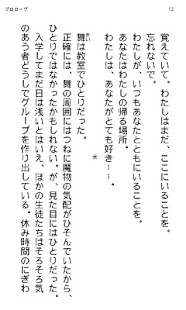 プロローグ
12
覚えていて。わたしはまだ、ここにいることを。
忘れないで。
わたしが、いつもあなたとともにいることを。
あなたはわたしの帰る場所。
わたしは、あなたがとても好き……。
*
舞は教室でひとりだった。
正確には、舞の周囲にはつねに魔物の気配がひそんでいたから、
ひとりではなかったかもしれない。が、見た目にはひとりだった。
入学してまだ日は浅いとはいえ、ほかの生徒たちはそろそろ気
のあう者どうしでグループを作り出している。休み時間のにぎわ